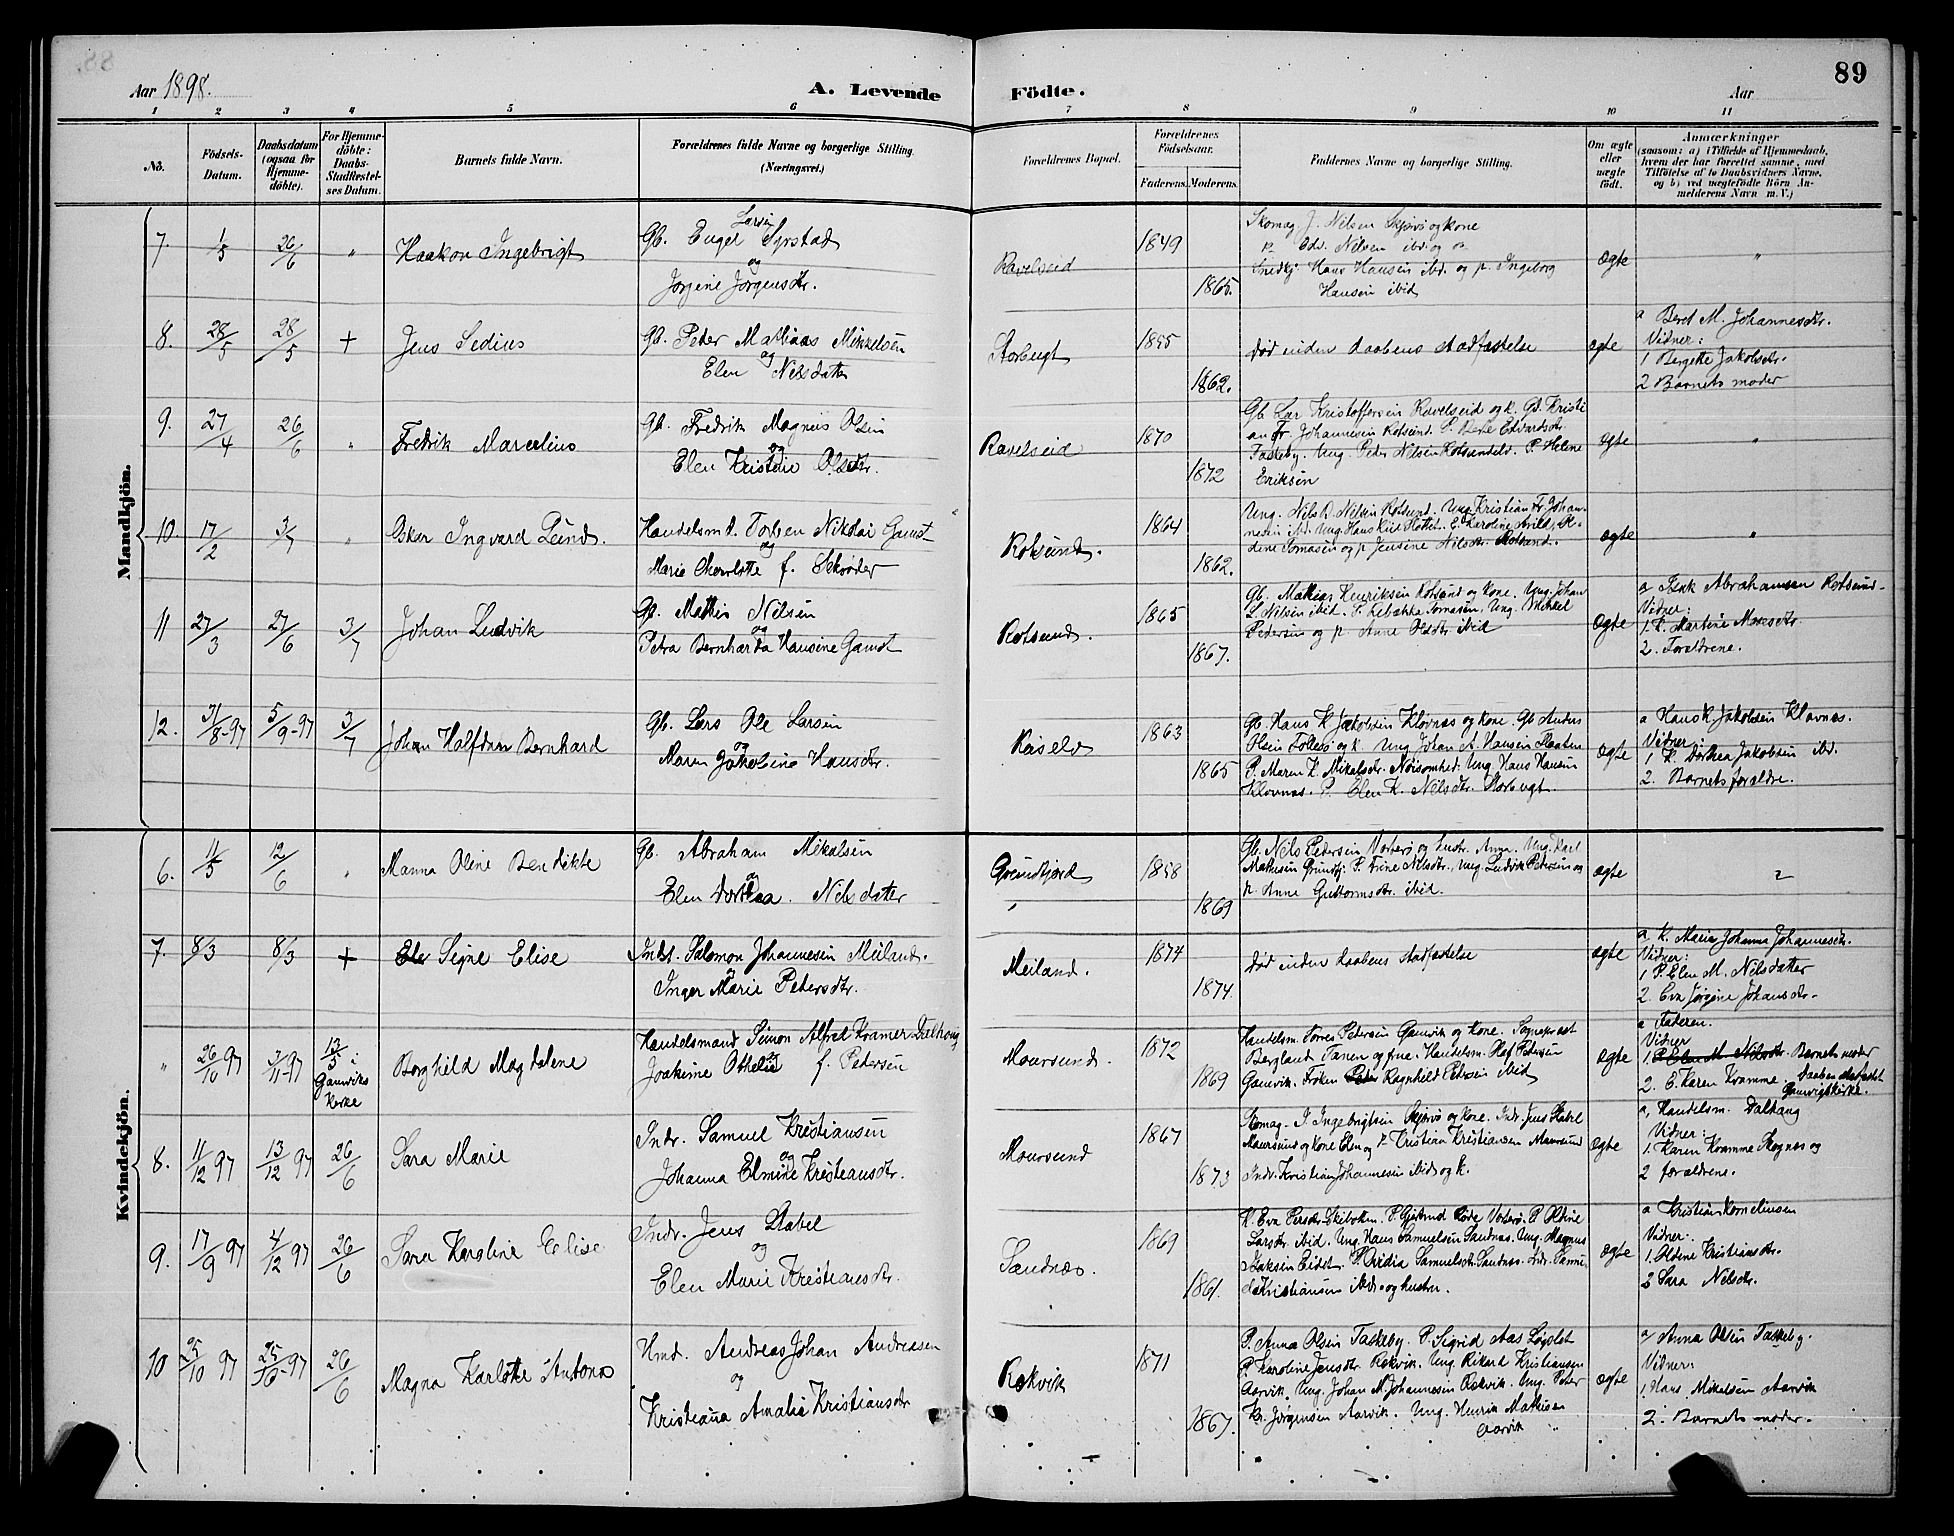 Aar 1898.
A. Levende Födte.
Aar
89
1 2 3 4 5 6 7 8 9 10 11
No.
Födsels-Datum.
Daabsdatum (ogsaa for Hjemme-döbte).
For Hjemme-döbte: Daabs-Stadfæstel-ses Datum.
Barnets fulde Navn.
Forældrenes fulde Navne og borgerlige Stilling. (Næringsvei.)
Forældrenes Bopæl.
Forældrenes Födselsaar.
Faderens. Moderens.
Faddernes Navne og borgerlige Stilling.
Om ægte eller uægte födt.
Anmærkninger
(saasom: a) i Tilfælde af Hjemmedaab, hvem der har forrettet samme, med Tilföielse af to Daabsvidners Navne, og b) ved uægtefödte Börn An-melderens Navn m. V.)
Mandkjön.
7. 1/5 26/6 " Haakon Ingebrigt
Gb. Engel Larsen Syrstad
og
Jorgine Jørgensdtr.
Ravelseid 1849 1865.
Skomag. J. Nilsen Skjervø og kone
p. Edv. Nilsen ibid og
Snedkj. Hans Hansen ibd. og p. Ingeborg
Hansen ibid
ægte "
8. 28/5 28/5 + Jens Sedius
Gb. Peter Mathias Mikkelsen
og
Elen Nilsdatter
Storbugt 1855 1862.
død inden daabens stadfæstelse
ægte
a Beret M. Johannesdtr.
Vidner:
1 Bergette Jakobsdtr.
2 Barnets moder
9. 27/4 26/6 " Fredrik Marcelius
Gb. Fredrik Magnus Olsen
og
Elen Kristine Olsdtr.
Ravelseid 1870 1872
Gb Lar Kristoffersen Ravelseid og k. Gb. Kristi
an Fr. Johannesen Rotsund. E. Berte Edvardsdtr
Taskeby. Ung. Peder Nilsen Rotsundeld. P. Helene
Eriksen
ægte "
10. 17/2 3/7 " Oskar Ingvard Lund.
Handelsmd. Torben Nikolai Gamst
og
Marie Charlotte f. Schrøder
Rotsund. 1864 1862.
Ung. Nils B. Nilsen Rotsund. Ung. Kristian Fr. Johan-
nesen ibd. Ung. Hans Kiil Hottet. E. Karoline
Tomasen og p. Jensine Nilsdtr. Rotsund.
ægte "
11 27/3 27/6 3/7 Johan Ludvik
Gb. Mathis Nilsen
og
Petra Bernharda Hansine Gamst
Rotsund. 1865 1867.
Gb. Mathias Henriksen Rotsund og kone. Ung. Johan
L. Nilsen ibid. P. Rebække Tomasen, Ung. Mikkel
Pedersen og p. Anne Olsdtr ibid
ægte
a Isak Abrahamsen Rotsund.
Vidner:
1. P. Martine Monsdtr
2. Forældrene.
12. 31/8-97 5/9-97 3/7 Johan Halfdan Bernhard
Gb. Lars Ole Larsen
og
Maren Jakobine Hansdtr.
Reiselv 1863 1865
Gb. Hans K. Jakobsen Klovnæs og kone. Gb Anders
Olsen Follesø og k. Ung Johan A. Hansen Flaaten
P. Maren K. Mikalsdtr. Nøisomhed. Ung. Hans Hansen
Klovnæs. P. Elen K. Nilsdtr. Storbugt.
ægte
a Hans K Jakobsen Klovnæs.
Vidner:
1 K. Dorthea Jakobsen ibd.
2. Barnets forældre.
Kvindekjön.
6. 11/5 12/6 " Manna Oline Bendikte
Gb. Abraham Mikalsen
og
Elen Dorthea Nilsdatter
Grundfjord 1858 1869
Gb. Nils Pedersen Vorterø og hustr. Anna. Ung. Karl
Mathisen Grundfj. P. Trine Nilsdtr., Ung. Ludvik Pedersen og
p. Anne Guttormsdtr. ibid.
ægte "
7. 8/3 8/3 + Signe Elise
Indst. Salomon Johannesen Meiland.
og
Inger Marie Petersdtr.
Meiland. 1874 1874.
død inden daabens stadfæstelse
ægte
a, K. Maria Johanna Johannesdtr.
Vidner:
1, P. Elen M. Nilsdatter
2. Eva Jørgine Johansdtr.
" 26/10 97 3/11-97 13/3 i Gamviks kirke Borghild Magdalene
Handelsmand Simon Alfred Kramer Dalhaug
og
Joakime Othelie f. Petersen
Maursund. 1872 1869
Handelsm. Torres Petersen Gamvik og kone. Sogneprest
Bergland Tanen og frue. Handelsm. Olaf Petersen
Gamvik. Frøken Ragnhild Petersen ibid
ægte
a Faderen.
Vidner
1. P. Elen M. Nilsdtr. Barnets moder
2. E. Karen Kramme Daaben stadfæstet Gamvigs kirke.
8. 11/12 97 13/12 97 26/6 Sara Marie
Indr. Samuel Kristiansen
og
Johanna Elmine Kristiansdtr.
Maursund 1867 1873
Skomag. I. Ingebrigtsen Skjervø og kone. Indr. Jens Stabel
Maursund og kone Elen og p. Kristian Kristiansen Maursund
Indr. Kristian Johannesen ibid og k.
ægte
a, Handelsm. Dalhaug
Vidner:
1. Karen Kramme Kognæs og
2 forældrene.
9. 17/9 97 4/12 97 26/6 Sara Karoline Elise
Indr. Jens Stabel
og
Elen Marie Kristiansdtr.
Sandnæs. 1869 1861.
K. Eva Persdtr. Skibotten. P. Gjertrud Røde Vorterø. P. Oldine
Larsdtr. ibid. Ung. Hans Samuelsen Sandnæs. Ung. Magnus
Isaksen Eidet. P. Ovidia Samuelsdtr. Sandnæs. Indr. Samu-
el Kristiansen ibid og hustru.
ægte
a Kristian Kornelius sen
Vidner:
1. Oldine Kristiansdtr.
2 Sara Nilsdtr.
10 25/10 97 25/10-97 26/6 Magna Karlotte Antona
Hmd. Andreas Johan Andreasen
og
Kristiana Amalie Kristiansdtr
Rokvik 1871 1867.
P. Anna Olsen Taskeby. P. Sigrid Aas Løgslet
P. Karoline Jensdtr. Rokvik. Ung. Rikard Kristiansen
Aarvik. Ung. Johan M. Johannesen Rokvik. Ung. Peter
Kr. Jørgensen Aarvik. Ung. Henrik Mathisen
Aarvik
ægte
a, Anna Olsen Taskeby.
Vidner:
1, Hans Mikelsen Aarvik
2. Barnets moder.